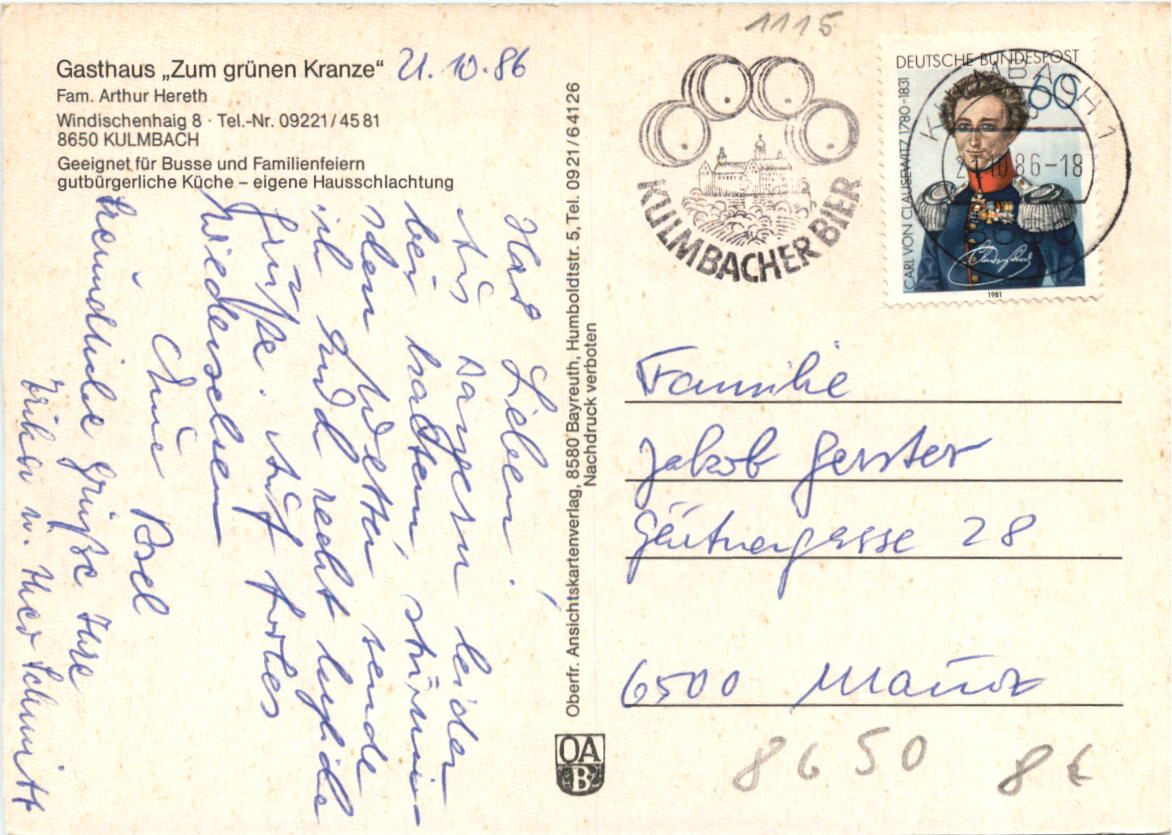 Gasthaus „Zum grünen Kranze“ 21.10.86
Fam. Arthur Hereth
Windischenhaig 8 · Tel.-Nr. 09221/4581
8650 KULMBACH
Geeignet für Busse und Familienfeiern
gutbürgerliche Küche – eigene Hausschlachtung
Ihr Lieben!
Aus Bayern leider
bei kaltem, stürmi-
schen Wetter sende
ich Euch recht liebe
Grüße. Auf frohes
Wiedersehen
Eure
Freundliche Grüße Ihre
Erika u. Theo Schmitt
Oberfr. Ansichtskartenverlag, 8580 Bayreuth, Humboldtstr. 5, Tel. 0921/64126
Nachdruck verboten
OA
B
1115
KULMBACHER BIER
DEUTSCHE BUNDESPOST
60
CARL VON CLAUSEWITZ 1780-1831
1981
KULMBACH 1
21.10.86-18
8650
Familie
Jakob Gerster
Gärtnergasse 28
6500 Mainz
8650 8€